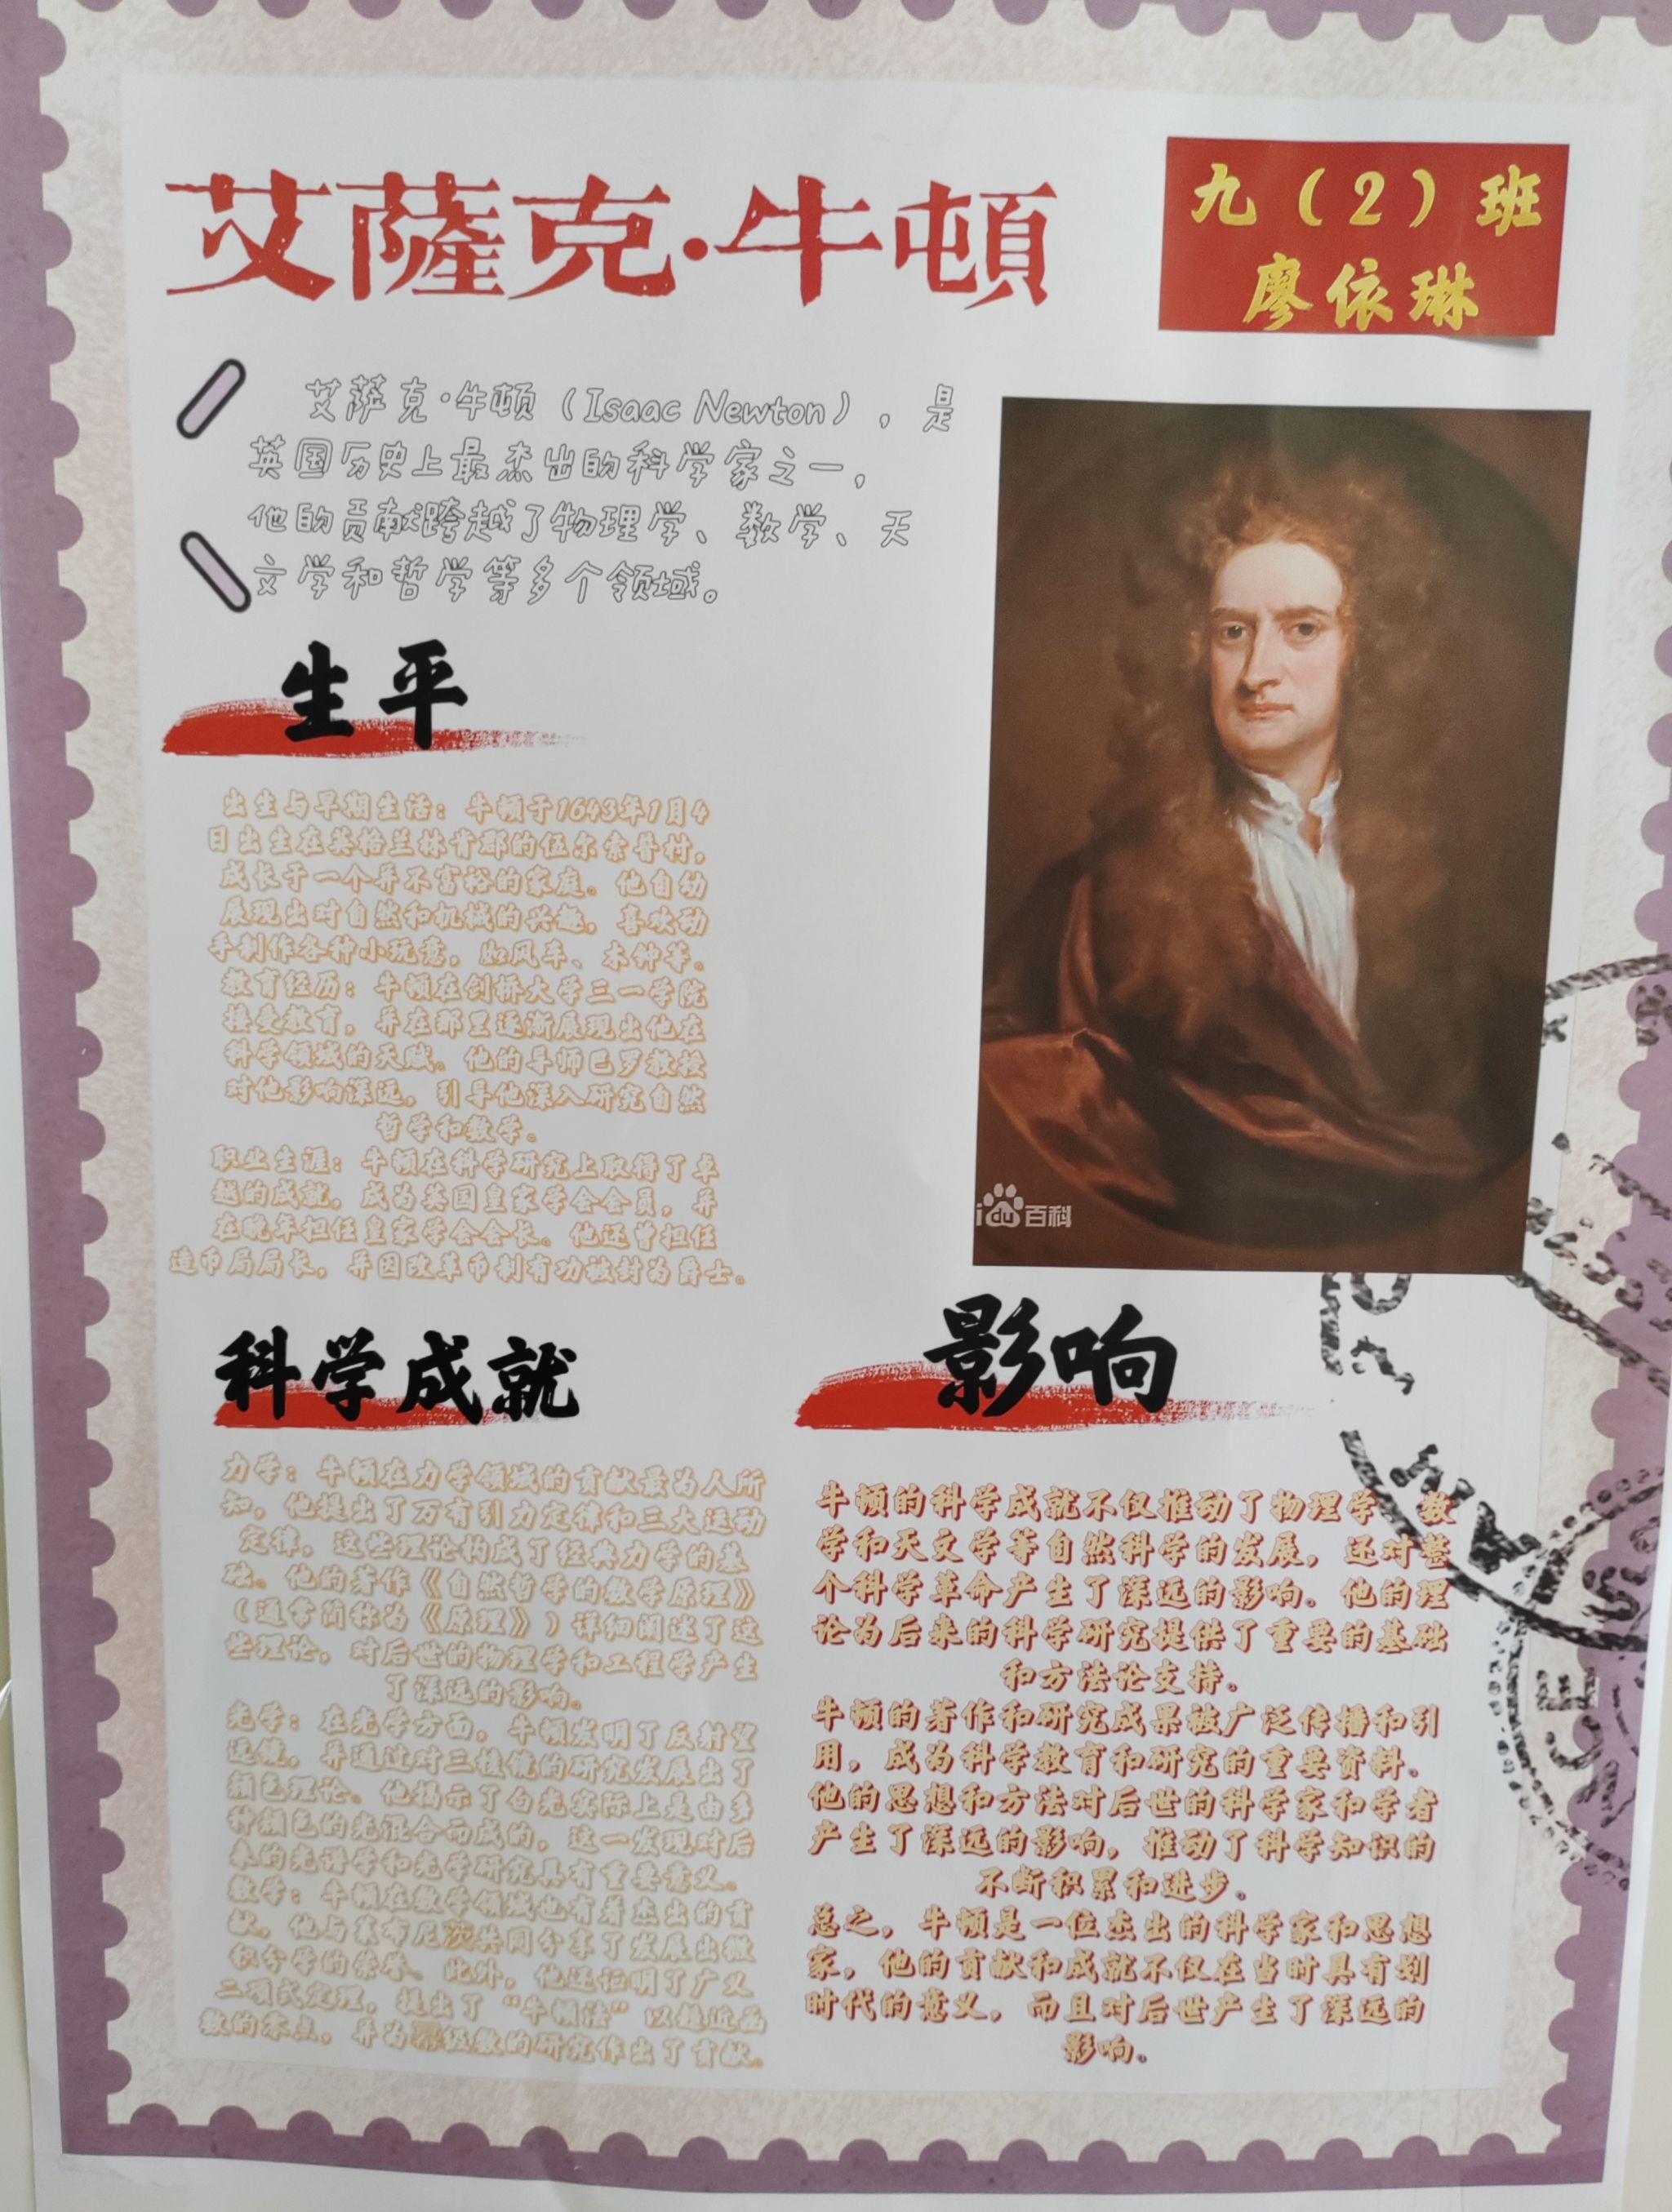 艾薩克·牛頓
九（2）班
廖依琳
艾萨克·牛顿（Isaac Newton），是
英国历史上最杰出的科学家之一，
他的贡献跨越了物理学、数学、天
文学和哲学等多个领域。
生平
出生与早期生活：牛顿于1643年1月4
日出生在英格兰林肯郡的伍尔索普村，
成长于一个并不富裕的家庭。他自幼
展现出对自然和机械的兴趣，喜欢动
手制作各种小玩意，如风车、木钟等。
教育经历：牛顿在剑桥大学三一学院
接受教育，并在那里逐渐展现出他在
科学领域的天赋。他的导师巴罗教授
对他影响深远，引导他深入研究自然
哲学和数学。
职业生涯：牛顿在科学研究上取得了卓
越的成就，成为英国皇家学会会员，并
在晚年担任皇家学会会长。他还曾担任
造币局局长，并因改革币制有功被封为爵士。
du百科
科学成就
力学：牛顿在力学领域的贡献最为人所
知，他提出了万有引力定律和三大运动
定律，这些理论构成了经典力学的基
础。他的著作《自然哲学的数学原理》
（通常简称为《原理》）详细阐述了这
些理论，对后世的物理学和工程学产生
了深远的影响。
光学：在光学方面，牛顿发明了反射望
远镜，并通过对三棱镜的研究发展出了
颜色理论。他揭示了白光实际上是由多
种颜色的光混合而成的，这一发现对后
来的光谱学和光学研究具有重要意义。
数学：牛顿在数学领域也有着杰出的贡
献，他与莱布尼茨共同分享了发展出微
积分学的荣誉。此外，他还证明了广义
二项式定理，提出了“牛顿法”以趋近函
数的零点，并为幂级数的研究作出了贡献。
影响
牛顿的科学成就不仅推动了物理学、数
学和天文学等自然科学的发展，还对整
个科学革命产生了深远的影响。他的理
论为后来的科学研究提供了重要的基础
和方法论支持。
牛顿的著作和研究成果被广泛传播和引
用，成为科学教育和研究的重要资料。
他的思想和方法对后世的科学家和学者
产生了深远的影响，推动了科学知识的
不断积累和进步。
总之，牛顿是一位杰出的科学家和思想
家，他的贡献和成就不仅在当时具有划
时代的意义，而且对后世产生了深远的
影响。